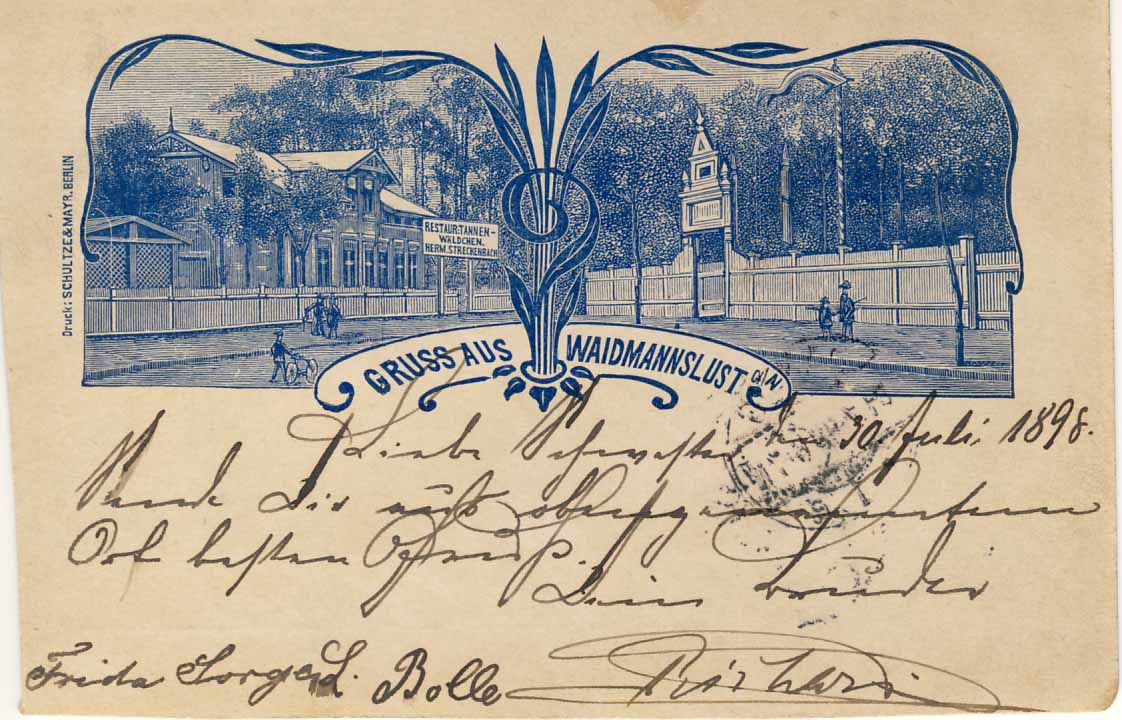 Druck: SCHULTZE & MAYR. BERLIN
RESTAUR: TANNEN-
WÄLDCHEN.
HERM. STRECKENBACH
GRUSS AUS WAIDMANNSLUST a/N.
den 30 Juli 1898.
Liebe Schwester
Sende Dir aus obengenanntem
Ort besten Gruß.
Dein Bruder
Frida Sorge L. Bolle